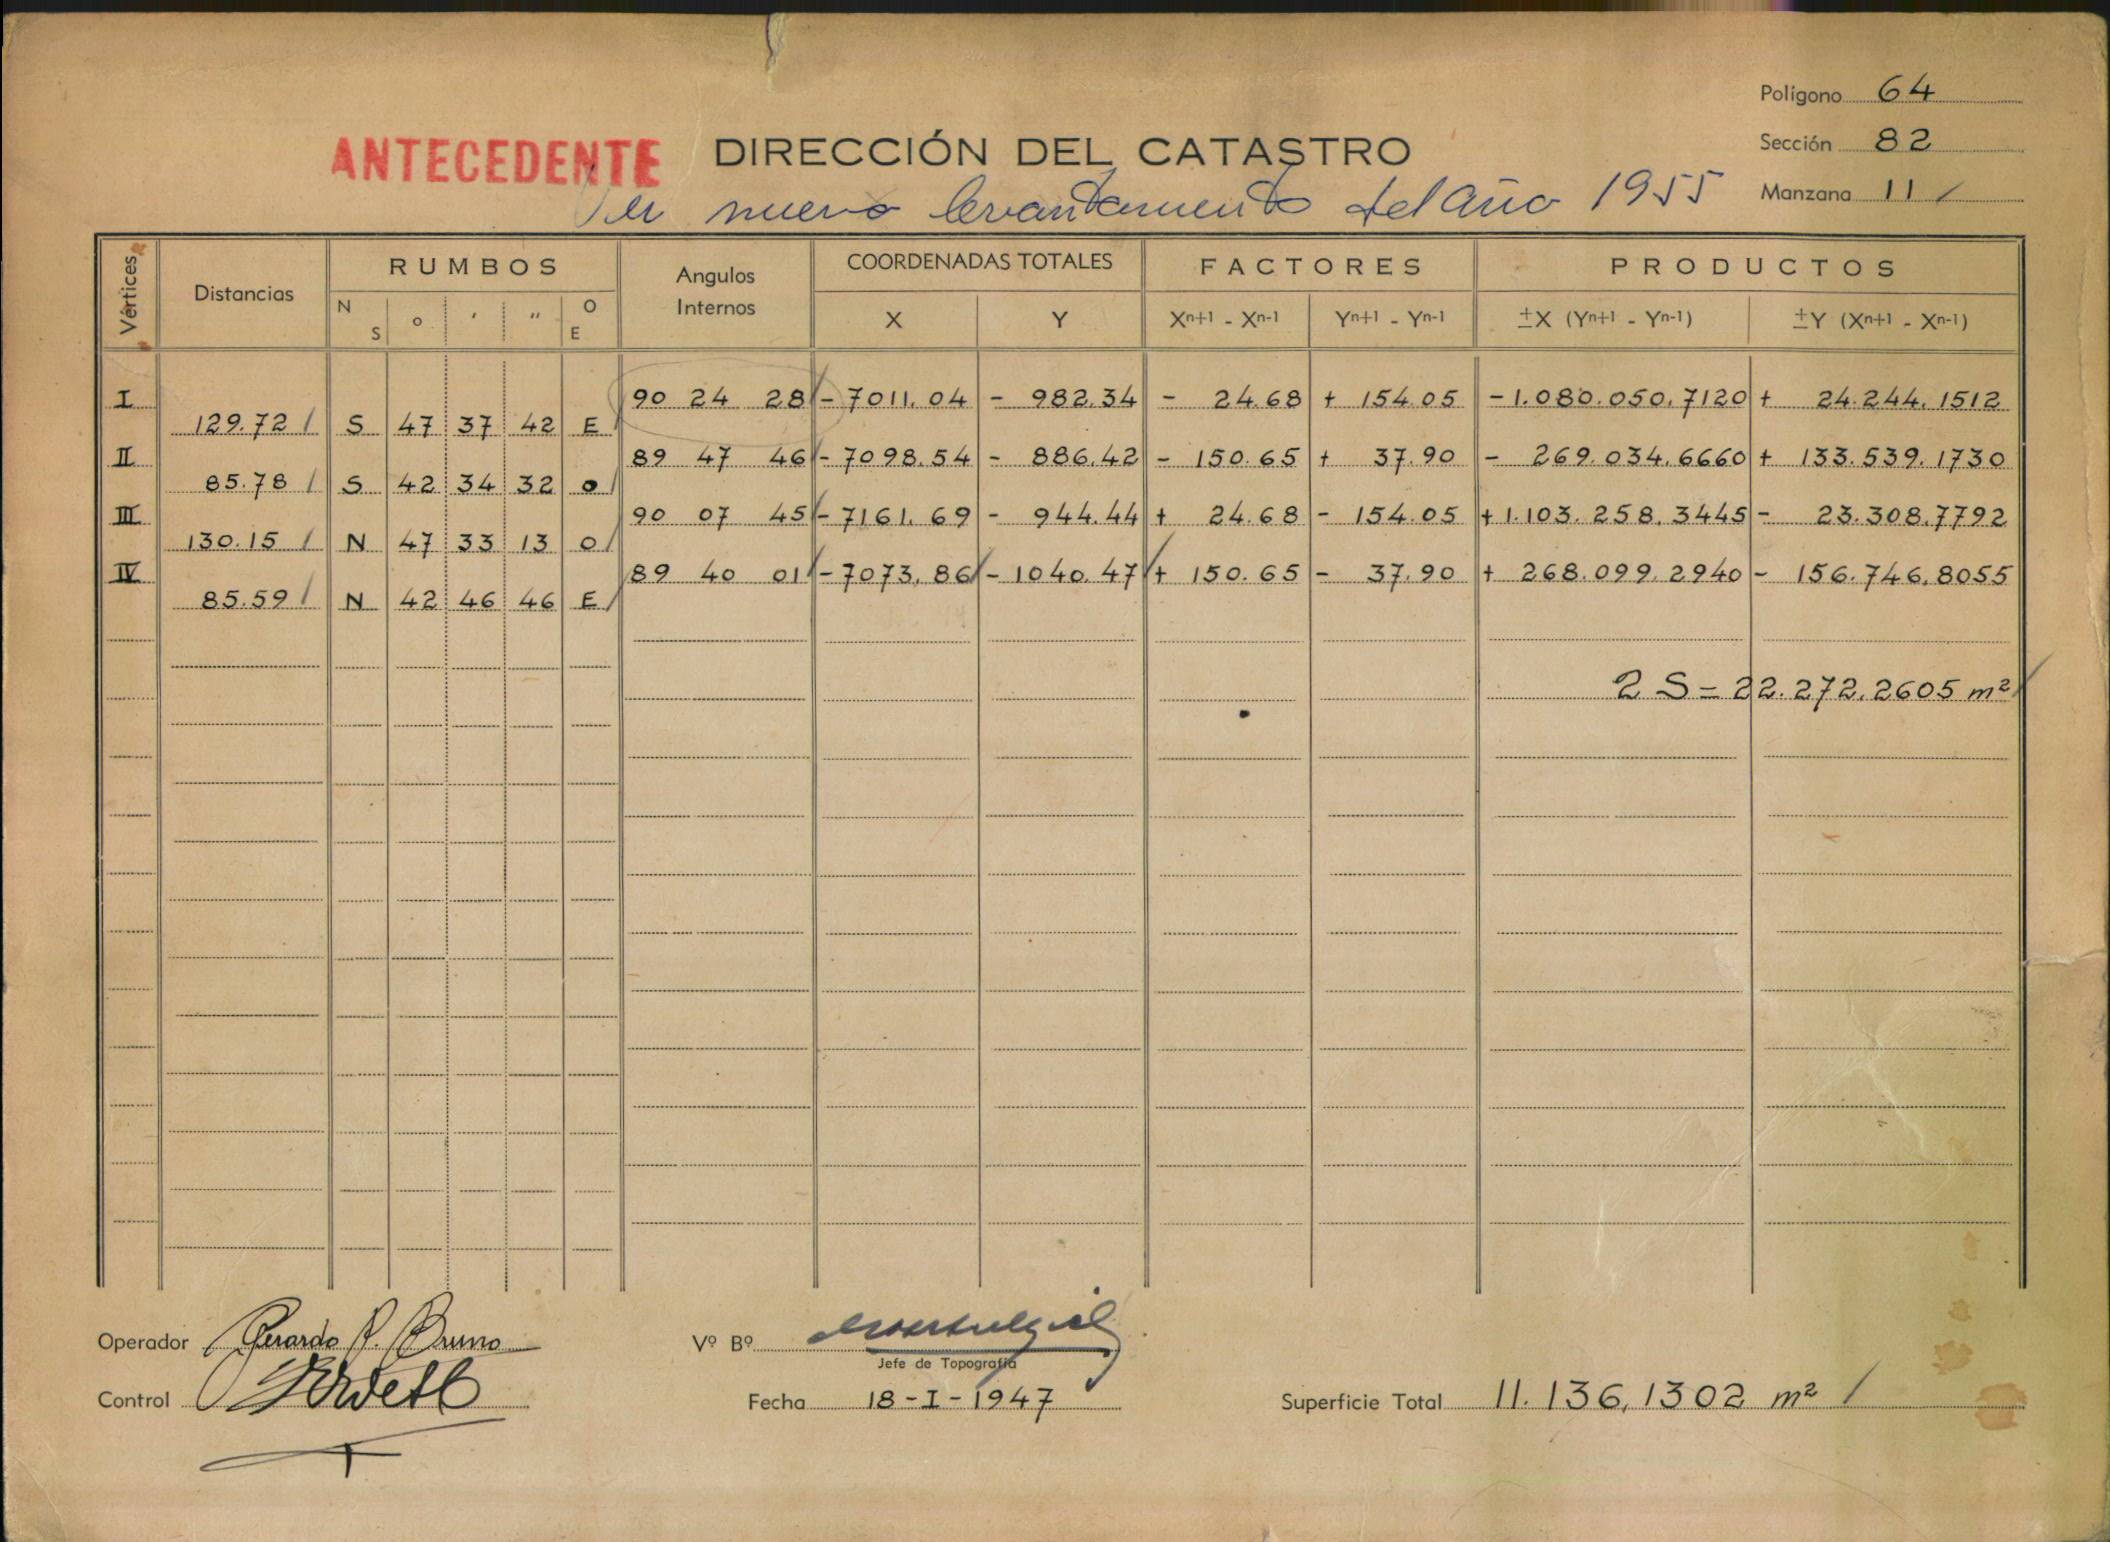 Polígono 64
ANTECEDENTE DIRECCIÓN DEL CATASTRO
Sección 82
Ver nuevo levantamiento del año 1955
Manzana 11 /
Vértices Distancias RUMBOS Angulos Internos COORDENADAS TOTALES FACTORES PRODUCTOS
N S o ' " O E X Y Xⁿ⁺¹ - Xⁿ⁻¹ Yⁿ⁺¹ - Yⁿ⁻¹ ±X (Yⁿ⁺¹ - Yⁿ⁻¹) ±Y (Xⁿ⁺¹ - Xⁿ⁻¹)
I 90 24 28 - 7011.04 - 982.34 - 24.68 + 154.05 - 1.080.050,7120 + 24.244,1512
129.72 / S 47 37 42 E /
II 89 47 46 - 7098.54 - 886.42 - 150.65 + 37.90 - 269.034,6660 + 133.539,1730
85.78 / S 42 34 32 O /
III 90 07 45 - 7161.69 - 944.44 + 24.68 - 154.05 + 1.103.258,3445 - 23.308,7792
130.15 / N 47 33 13 O /
IV 89 40 01 - 7073.86 - 1040.47 + 150.65 - 37.90 + 268.099,2940 - 156.746,8055
85.59 / N 42 46 46 E /
2 S = 22.272,2605 m² /
Operador Gerardo R. Bruno Vº Bº
Jefe de Topografía
Control Fecha 18-I-1947 Superficie Total 11.136,1302 m² /